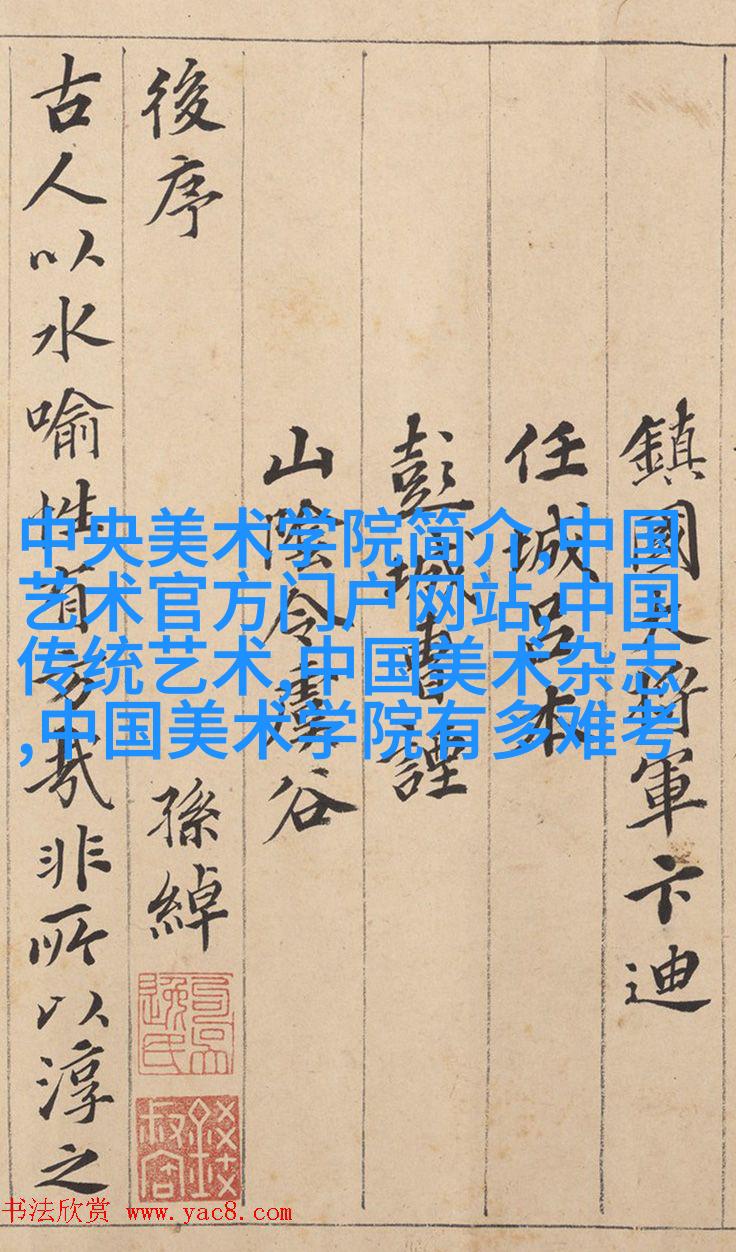 鎮國大將軍卞迪
任城呂本
彭城曹諲
山陰令虞谷
後序 孫綽
古人以水喻性有旨哉非所以淳之
中央美术学院简介,中国
艺术官方门户网站,中国
传统艺术,中国美术杂志
,中国美术学院有多难考
书法欣赏 www.yac8.com